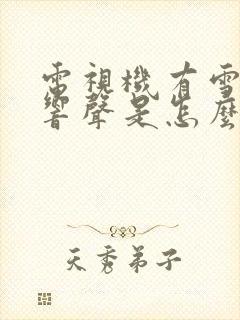 電視機有雪
響聲是怎麼
天秀弟子